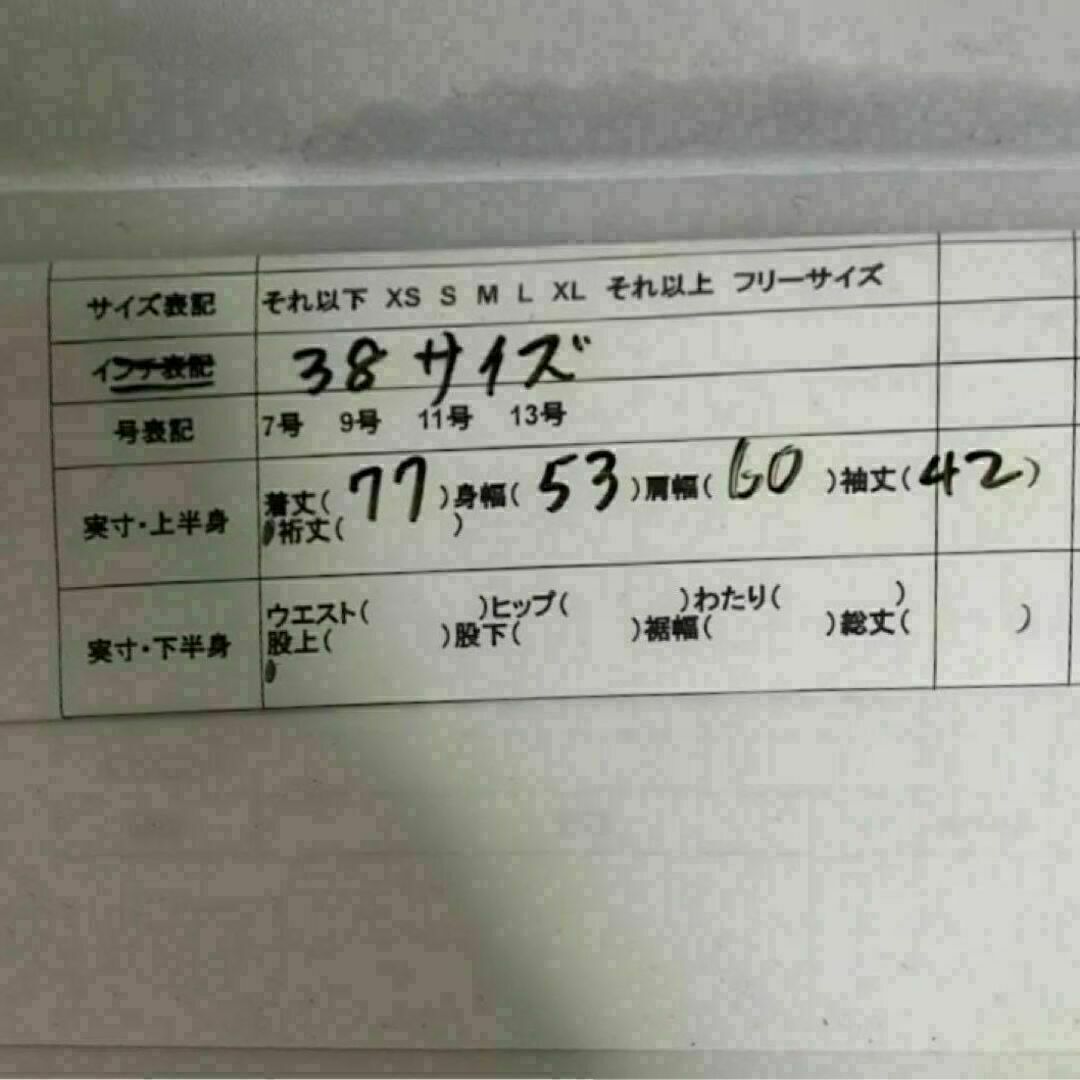 サイズ表記 それ以下 XS S M L XL それ以上 フリーサイズ
インチ表記 38サイズ
号表記 7号 9号 11号 13号
着丈( 77 )身幅( 53 )肩幅( 60 )袖丈( 42 )
実寸・上半身 裄丈( )
ウエスト( )ヒップ( )わたり( )
実寸・下半身 股上( )股下( )裾幅( )総丈( )